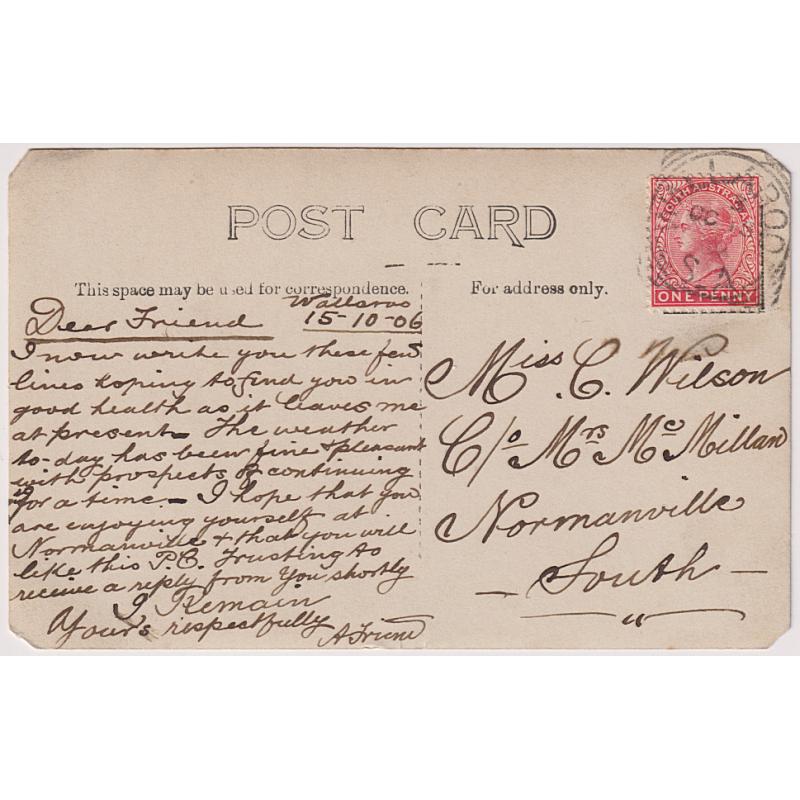 POST CARD
This space may be used for correspondence.
For address only.
Wallaroo
15-10-06
Dear Friend
I now write you these few
lines hoping to find you in
good health as it leaves me
at present – The weather
to-day has been fine & pleasant
with prospects of continuing
for a time – I hope that you
are enjoying yourself at
Normanville & that you will
like this P.C. Trusting to
receive a reply from you shortly
I Remain
Your's respectfully
A Friend
SOUTH AUSTRALIA
ONE PENNY
Miss. C. Wilson
C/o Mrs Mc Millan
Normanville
– South –
"